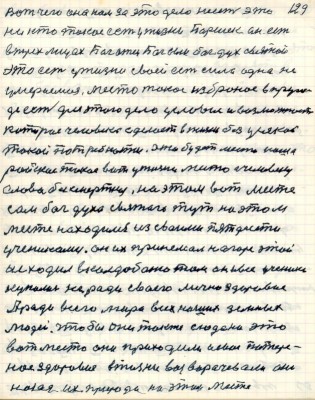 Вот чего она нам за это дело несет это 129
ни кто такое есть в жизни
в трех лицах Бог отец Бог сын бог дух святой
Это есть в жизни своей есть сила одна не
умираемая. Место такое избраное в природе
есть для этого дело условие и возможность
которое человек сделает в жизни без у
такой потребности. Это будет место наша
райское такое вот в жизни место человеку
слова бессмертику, на этом вот месте
сам бог духа святого тут на этом
месте находился из своими пятдести
учениками. он их принемал на горе этой
исходил в колдобино там он и все ученики
купалис не ради своего лично здоровие
А ради всего мира всех наших земных
людей. что бы они также сюда на это
вот место они приходили и свое потеряное
здоровие в жизни возворачевали он
ихняя их природа на этом месте